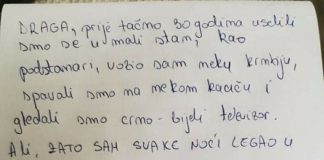 DRAGA, prije tačno 30 godina uselili
smo se u mali stan, kao
podstanari, vozio sam neku krntiju,
spavali smo na nekom kauču i
gledali smo crno-bijeli televizor.
Ali, ZATO SAM SVAKE NOĆI LEGAO U